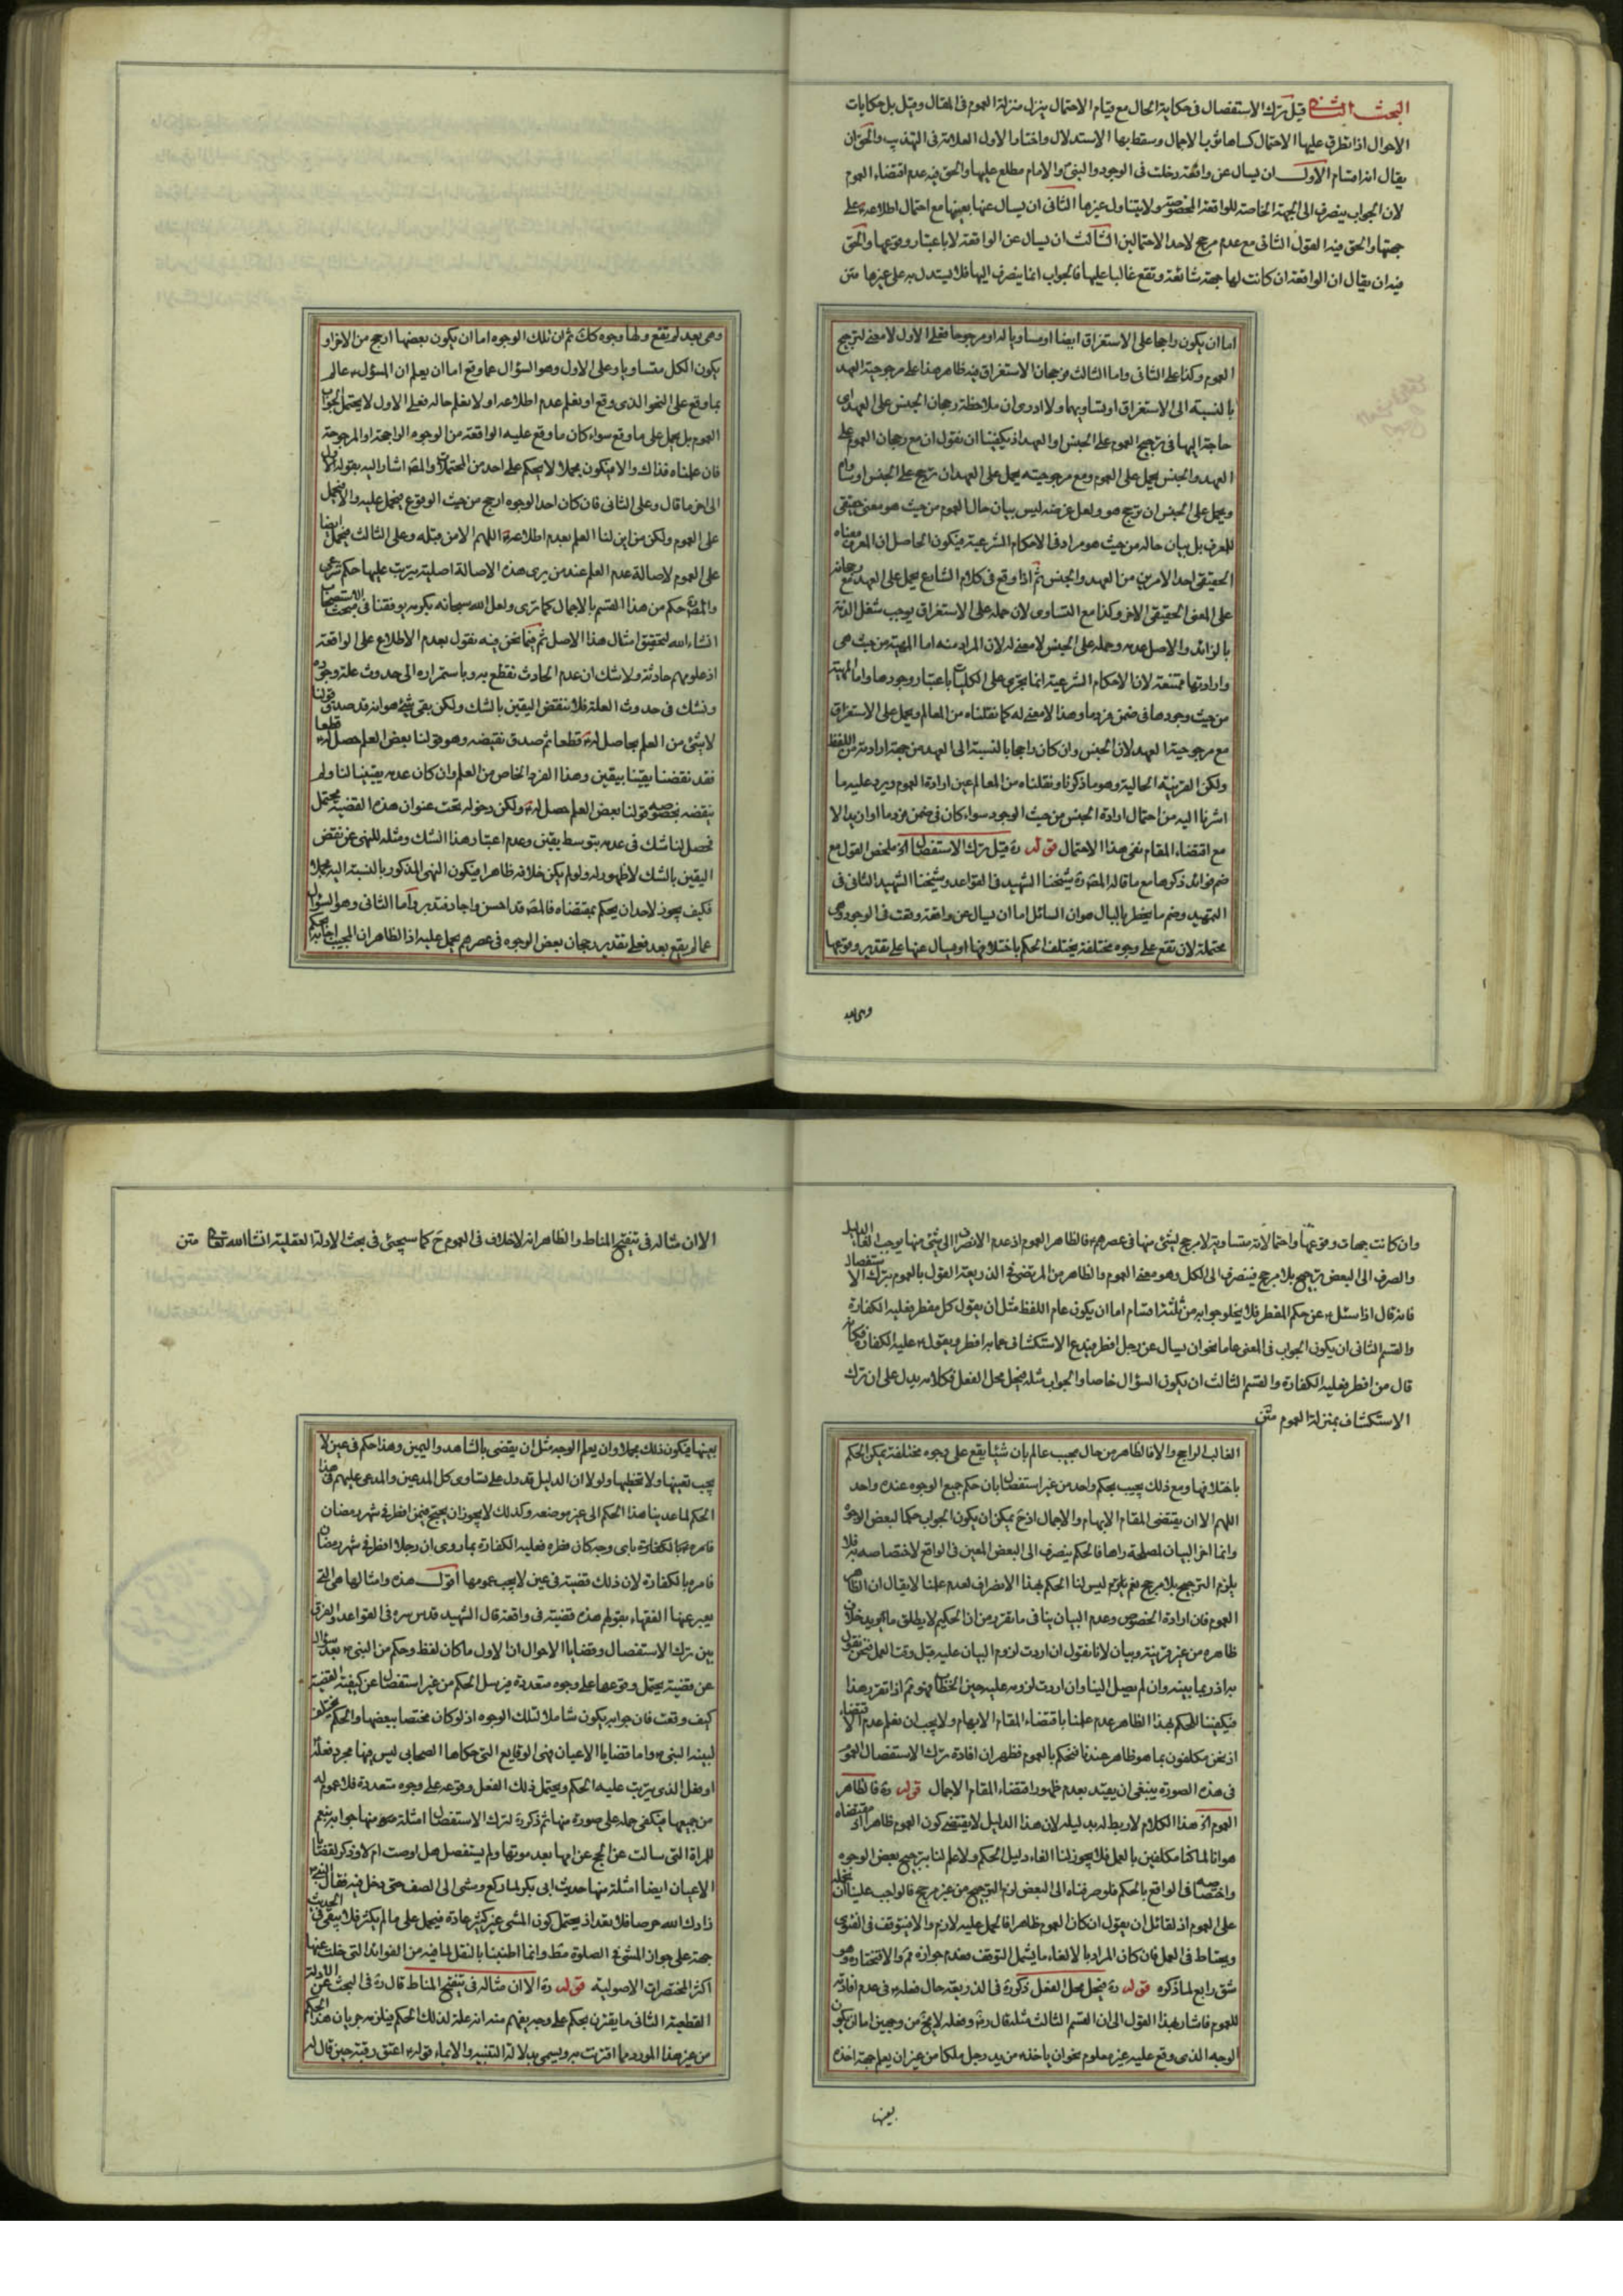 البحث الثاني قيل ترك الاستفصال فى حكاية الحال مع قيام الاحتمال ينزل منزلة العموم فى المقال وقيل بل حكايات
الاحوال اذا تطرق عليها الاحتمال كساها ثوب الاجمال وسقط بها الاستدلال واختار الاول العلامة فى التهذيب والحق ان
يقال انه اقسام الاول ان يسال عن واقعة دخلت فى الوجود والنبى او الامام مطلع عليها والحق فيه عدم اقتضاء العموم
لان الجواب ينصرف الى الجهة الخاصة للواقعة المخصوصة ولا يتناول غيرها الثانى ان يسال عنها بعينها مع احتمال اطلاعه على
جهتها والحق فيه القول الثانى مع عدم مرجح لاحد الاحتمالين الثالث ان يسال عن الواقعة لا باعتبار وقوعها والحق
فيه ان يقال ان الواقعة ان كانت لها جهة شائعة وتقع غالبا عليها فالجواب انما ينصرف اليها فلا يستدل به على غيرها متن
اما ان يكون راجحا على الاستغراق ايضا او مساويا له او مرجوحا فعلى الاول لا معنى لترجيح
العموم وكذا على الثانى واما الثالث فرجحان الاستغراق فيه ظاهر هذا على مرجوحية العهد
بالنسبة الى الاستغراق او تساويهما ولا ادرى ان ملاحظة رجحان الجنس على العهد اى
حاجة اليها فى ترجيح العموم على الجنس او العهد اذ يكفينا ان نقول ان مع رجحان العموم على
العهد والجنس يحمل على العموم ومع مرجوحيته يحمل على العهد ان ترجح على الجنس او ساواه
ويحمل على الجنس ان ترجح هو ولعل غرضه ليس بيان حال العموم من حيث هو معنى حقيقى
للمعرف بل بيان حاله من حيث هو مراد فى الاحكام الشرعية فيكون الحاصل ان المعرف معناه
الحقيقى احد الامرين من العهد والجنس ثم اذا وقع فى كلام الشارع يحمل على العهد مع رجحانه
على المعنى الحقيقى الاخر وكذا مع التساوى لان حمله على الاستغراق يوجب شغل الذمة
بالزائد والاصل عدمه وحمله على الجنس لا معنى له لان المراد منه اما المهية من حيث هى
وارادتها ممتنعة لانا الاحكام الشرعية انما يجرى على الكليات باعتبار وجودها واما المهية
من حيث وجودها فى ضمن فرد ما وهذا لا معنى له كما نقلناه من المعالم ويحمل على الاستغراق
مع مرجوحية العهد لان الجنس وان كان راجحا بالنسبة الى العهد من جهة ارادته من اللفظ
ولكن القرينة الحالية وهو ما ذكرنا ونقلناه من المعالم عين ارادة العموم ويرد عليه ما
اشرنا اليه من احتمال ارادة الجنس من حيث الوجود سواء كان فى ضمن فرد ما او ازيد الا
مع اقتضاء المقام نفى هذا الاحتمال قوله ره قيل ترك الاستفصال اه ملخص القول مع
ضم فوائد ذكرها مع ما قاله المصره شيخنا الشهيد فى القواعد وشيخنا الشهيد الثانى فى
التمهيد وضم ما يخطر بالبال هو ان السائل اما ان يسال عن واقعة وقعت فى الوجود وهى
محتملة لان تقع على وجوه مختلفة يختلف الحكم باختلافها او يسال عنها على تقدير وقوعها
وهى بعد
وهى بعد لم يقع ولها وجوه كك ثم ان تلك الوجوه اما ان يكون بعضها ارجح من الاخر او
يكون الكل متساويا وعلى الاول وهو السؤال عما وقع اما ان يعلم ان المسؤل عالم
بما وقع على النحو الذى وقع او نعلم عدم اطلاعه او لا نعلم حاله فعلى الاول لا يحتمل الجواب
العموم بل يحمل على ما وقع سواء كان ما وقع عليه الواقعة من الوجوه الراجحة او المرجوحة
فان علمناه فذاك والا فيكون مجملا لا يحكم على احد من المحتملات والمص اشار اليه بقوله الاول
الى اخر ما قال وعلى الثانى فان كان احد الوجوه ارجح من حيث الوقوع فيحمل عليه والا فيحمل
على العموم ولكن من اين لنا العلم بعدم اطلاعه اللهم الا من قبله وعلى الثالث فيحمل ايضا
على العموم لاصالة عدم العلم عند من يرى هذه الاصالة اصلية يترتب عليها حكم شرعى
والمص حكم من هذا القسم بالاجمال كما ترى ولعل الله سبحانه بكرمه يوفقنا فى مبحث الاستصحاب
انشاء الله لتحقيق امثال هذا الاصل ثم فيما نحن فيه نقول بعدم الاطلاع على الواقعة
اذ علومهم حادثة ولا شك ان عدم الحادث نقطع به وباستمراره الى حدوث علة وجوده
ونشك فى حدوث العلة فلا ننقض اليقين بالشك ولكن بقى شئ هو انه قد صدق قولنا
لا شئ من العلم بحاصل له قطعا ثم صدق نقيضه وهو قولنا بعض العلم حصل له قطعا
فقد نقضنا يقينا بيقين وهذا الفرد الخاص من العلم وان كان عدمه يقينيا لنا ولم
ينقضه بخصوصه قولنا بعض العلم حصل له ولكن دخوله تحت عنوان هذه القضية محتمل
فحصل لنا شك فى عدمه بتوسط يقين وعدم اعتبار هذا الشك ومثله للنهى عن نقض
اليقين بالشك لا ظهور له ولو لم يكن خلافه ظاهرا فيكون النهى المذكور بالنسبة اليه مجملا
فكيف يجوز لاحد ان يحكم بمقتضاه فالمص قد احسن واجاد فتدبر واما الثانى وهو السؤال
عما لم يقع بعد فعلى تقدير رجحان بعض الوجوه فى عصرهم يحمل عليه اذ الظاهر ان المجيب
وان كانت جهات وقوعها واحتمالاته متساوية لا مرجح لشئ منها فى عصرهم فالظاهر العموم اذ عدم الانصراف الى شئ منها يوجب الغاء الدليل
والصرف الى البعض ترجيح بلا مرجح فينصرف الى الكل وهو معنى العموم والظاهر من المرتضى فى الذريعة القول بالعموم بترك الاستفصال
فانه قال اذا سئل عن حكم المفطر فلا يخلو جوابه من ثلثة اقسام اما ان يكون عام اللفظ مثل ان يقول كل مفطر فعليه الكفارة
والقسم الثانى ان يكون الجواب فى المعنى عاما نحو ان يسال عن رجل افطر فيدع الاستكشاف عما به افطر ويقول عليه الكفارة فكانه
قال من افطر فعليه الكفارة والقسم الثالث ان يكون السؤال خاصا والجواب مثله فيحل محل الفعل فكلامه يدل على ان ترك
الاستكشاف بمنزلة العموم متن
الغالب الراجح والا فالظاهر من حال مجيب عالم بان شيئا يقع على وجوه مختلفة يمكن الحكم
باختلافها ومع ذلك يجيب بحكم واحد من غير استفصال بان حكم جميع الوجوه عنده واحد
اللهم الا ان يقتضى المقام الابهام والاجمال اذ ح يمكن ان يكون الجواب حكما لبعض الوجوه
وانما اخر البيان لمصلحة راها فالحكم ينصرف الى البعض المعين فى الواقع لاختصاصه به فلا
يلزم الترجيح بلا مرجح نعم يلزم ليس لنا الحكم بهذا الانصراف لعدم علمنا لا يقال ان الظاهر
العموم فان ارادة الخصوص وعدم البيان ينافى ما تقرر من ان الحكيم لا يطلق ما يريد خلاف
ظاهره من غير قرينة وبيان لانا نقول ان اردت لزوم البيان عليه قبل وقت العمل فنحن نقول
به اذ ربما بينه وان لم يصل الينا وان اردت لزومه عليه حين الخطاب فهو ثم اذا تقرر هذا
فيكفينا للحكم بهذا الظاهر عدم علمنا باقتضاء المقام الابهام ولا يجب ان نعلم عدم الاقتضاء
اذ نحن مكلفون بما هو ظاهر عندنا فنحكم بالعموم فظهر ان افادة ترك الاستفصال العموم
فى هذه الصورة ينبغى ان يقيد بعدم ظهور اقتضاء المقام الاجمال قوله ره فالظاهر
العموم اه هذا الكلام لا ربط له بدليله لان هذا الدليل لا يقتضى كون العموم ظاهرا اذ مقتضاه
هو انا لما كنا مكلفين بالعمل فلا يجوز لنا الغاء دليل الحكم ولا علم لنا بترجيح بعض الوجوه
واختصاصه فى الواقع بالحكم فلو صرفناه الى البعض لزم الترجيح من غير مرجح فالواجب علينا ان نحمله
على العموم اذ لقائل ان يقول ان كان العموم ظاهرا فالحمل عليه لازم والا فيتوقف فى الفتوى
ويحتاط فى العمل فان كان المراد بالالغاء ما يشمل التوقف فعدم جوازه مم والا فنختاره وهو
شق رابع لما ذكره قوله ره فيحل محل الفعل ذكره فى الذريعة حال فعله فى عدم افادته
للعموم فاشار بهذا القول الى ان القسم الثالث مثله قال ره وفعله لا يخ من وجهين اما ان يكون
الوجه الذى وقع عليه غير معلوم نحو ان ياخذ من يد رجل ملكا من غير ان يعلم جهة اخذه
بعينها
الا ان مثاله فى تنقيح المناط والظاهر انه لا خلاف فى العموم ح كما سيجئ فى بحث الادلة العقلية انشاالله تعالى متن
بعينها فيكون ذلك مجملا وان يعلم الوجه مثل ان يقضى بالشاهد واليمين وهذا حكم فى عين لا
يجب تعينها ولا تخطيها ولولا ان الدليل قد دل على تساوى كل المدعين والمدعى عليهم فى هذا
الحكم لما عدينا هذا الحكم الى غير موضعه وكذلك لا يجوز ان يحتج فيمن افطر فى شهر رمضان
فامره بالكفارة باى وجه كان فطره فعليه الكفارة بما روى ان رجلا افطر فى شهر رمضان
فامره بالكفارة لان ذلك قضية فى عين لا يجب عمومها اقول هذه وامثالها هى التى
يعبر عنها الفقهاء بقولهم هذه قضية فى واقعة قال الشهيد قدس سره فى القواعد والفرق
بين ترك الاستفصال وقضايا الاحوال ان الاول ما كان لفظ وحكم من النبى بعد سؤال
عن قضية يحتمل وقوعها على وجوه متعددة فيرسل الحكم من غير استفصال عن كيفية القضية
كيف وقعت فان جوابه يكون شاملا لتلك الوجوه اذ لو كان مختصا ببعضها والحكم يختلف
لبينه النبى واما قضايا الاعيان فهى الوقايع التى حكاها الصحابى ليس فيها مجرد فعله
او فعل الذى يترتب عليه الحكم ويحتمل ذلك الفعل وقوعه على وجوه متعددة فلا عموم له
من جميعها فيكفى حمله على صورة منها ثم ذكر ره لترك الاستفصال امثلة منها جوابه بنعم
للمراة التى سالت عن الحج عن امها بعد موتها ولم يستفصل هل اوصت ام لا وذكر لقضايا
الاعيان ايضا امثلة منها حديث ابى بكر لما ركع ومشى الى الصف حتى دخل فيه فقال النبى
زادك الله حرصا فلا تعد اذ يحتمل كون المشى غير كثير عادة فيحمل على ما لم يكثر فلا يبقى فى الحديث
حجة على جواز المشى فى الصلوة مط وانما اطنبنا بالنقل لما فيه من الفوائد التى خلت عنها
اكثر المختصرات الاصولية قوله ره الا ان مثاله فى تنقيح المناط قال ره فى البحث عن الادلة
القطعية الثانى ما يقترن بحكم على وجه يفهم منه انه علة لذلك الحكم فيلزم جريان هذا الحكم
من غير هذا المورد مما اقترنت به ويسمى بدلالة التنبيه والايماء قوله اعتق رقبة حين قال له